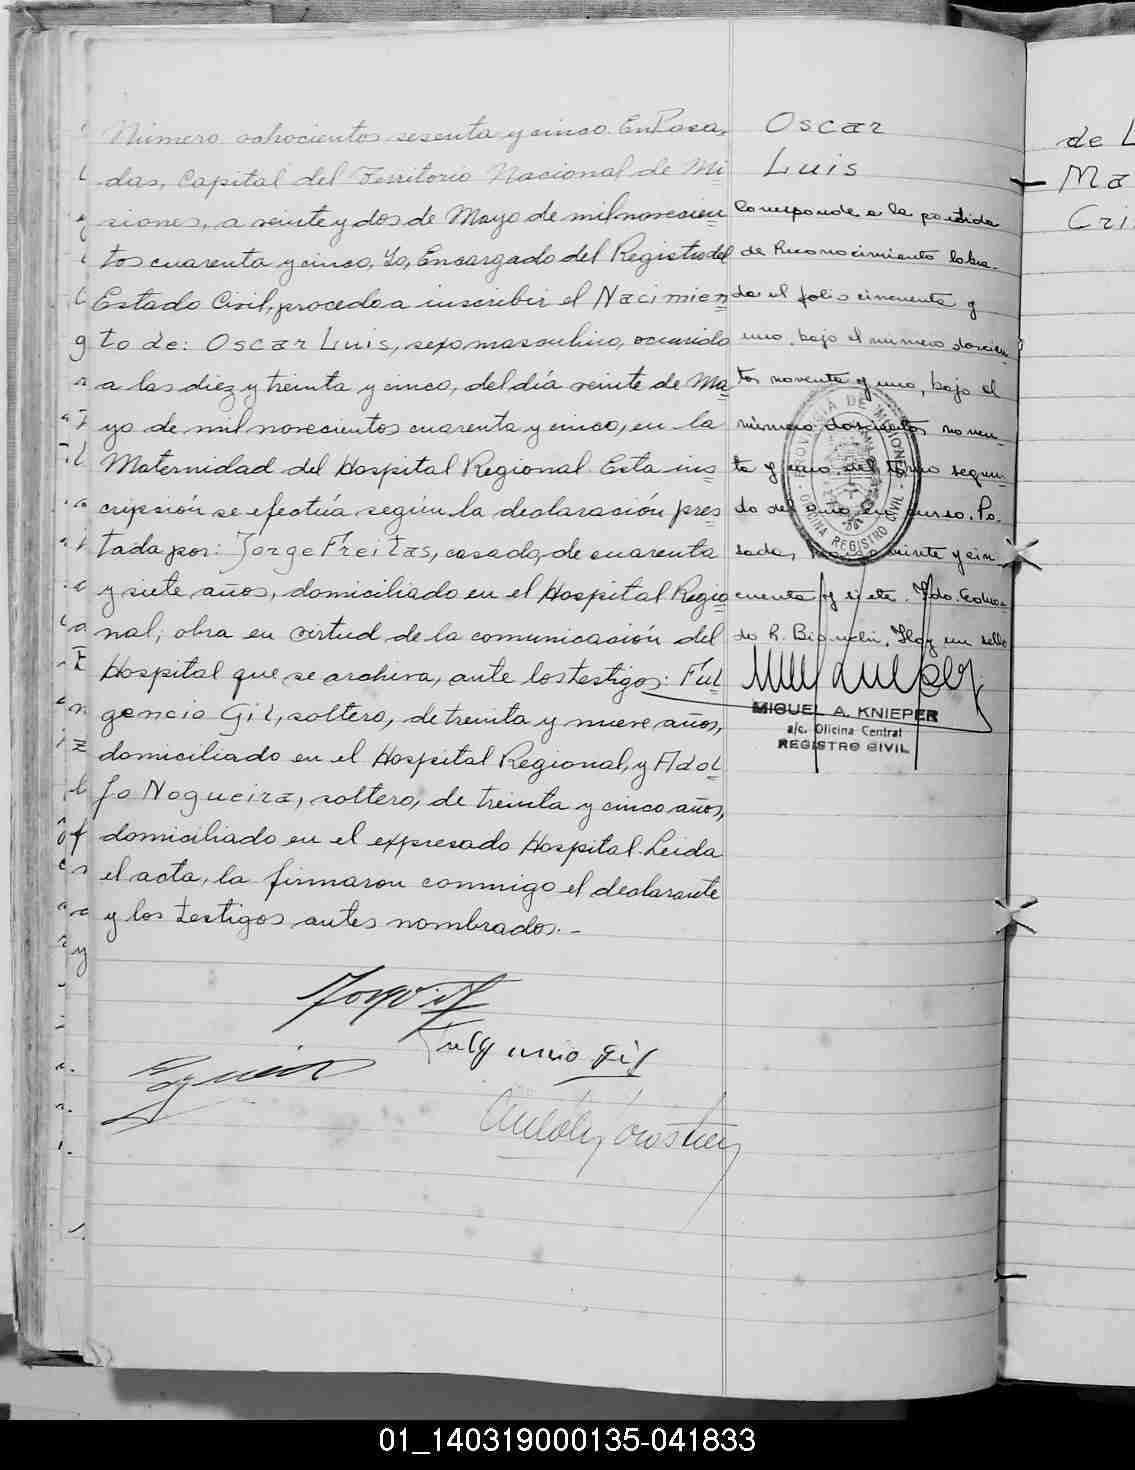 Número ochocientos sesenta y cinco. En Posa,
das, Capital del Territorio Nacional de Mi
siones, a veinte y dos de Mayo de mil novecien
tos cuarenta y cinco, Yo, Encargado del Registro del
Estado Civil, procedo a inscribir el Nacimien
to de: Oscar Luis, sexo masculino, ocurrido
a las diez y treinta y cinco, del día veinte de Ma
yo de mil novecientos cuarenta y cinco, en la
Maternidad del Hospital Regional. Esta ins
cripción se efectúa según la declaración pres
tada por: Jorge Freitas, casado, de cuarenta
y siete años, domiciliado en el Hospital Regio
nal, obra en virtud de la comunicación del
Hospital que se archiva, ante los testigos: Ful
gencio Gil, soltero, de treinta y nueve años,
domiciliado en el Hospital Regional, y Adol
fo Nogueira, soltero, de treinta y cinco años,
domiciliado en el expresado Hospital. Leida
el acta, la firmaron conmigo el declarante
y los testigos antes nombrados.-
Fulgencio Gil
Oscar
Luis
Corresponde a la partida
de Reconocimiento labra-
da el folio cincuenta y
uno, bajo el número doscien
tos noventa y uno, bajo el
número doscientos noven-
ta y uno del tomo segun-
do del año en curso. Po-
sadas, veinte y cin
cuenta y siete. Fdo. Eduar-
do R. Bianchi. Hay un sello
PROVINCIA DE MISIONES
OFICINA REGISTRO CIVIL
MIGUEL A. KNIEPER
a/c. Oficina Central
REGISTRO CIVIL
de L
Ma
Cri
01_140319000135-041833